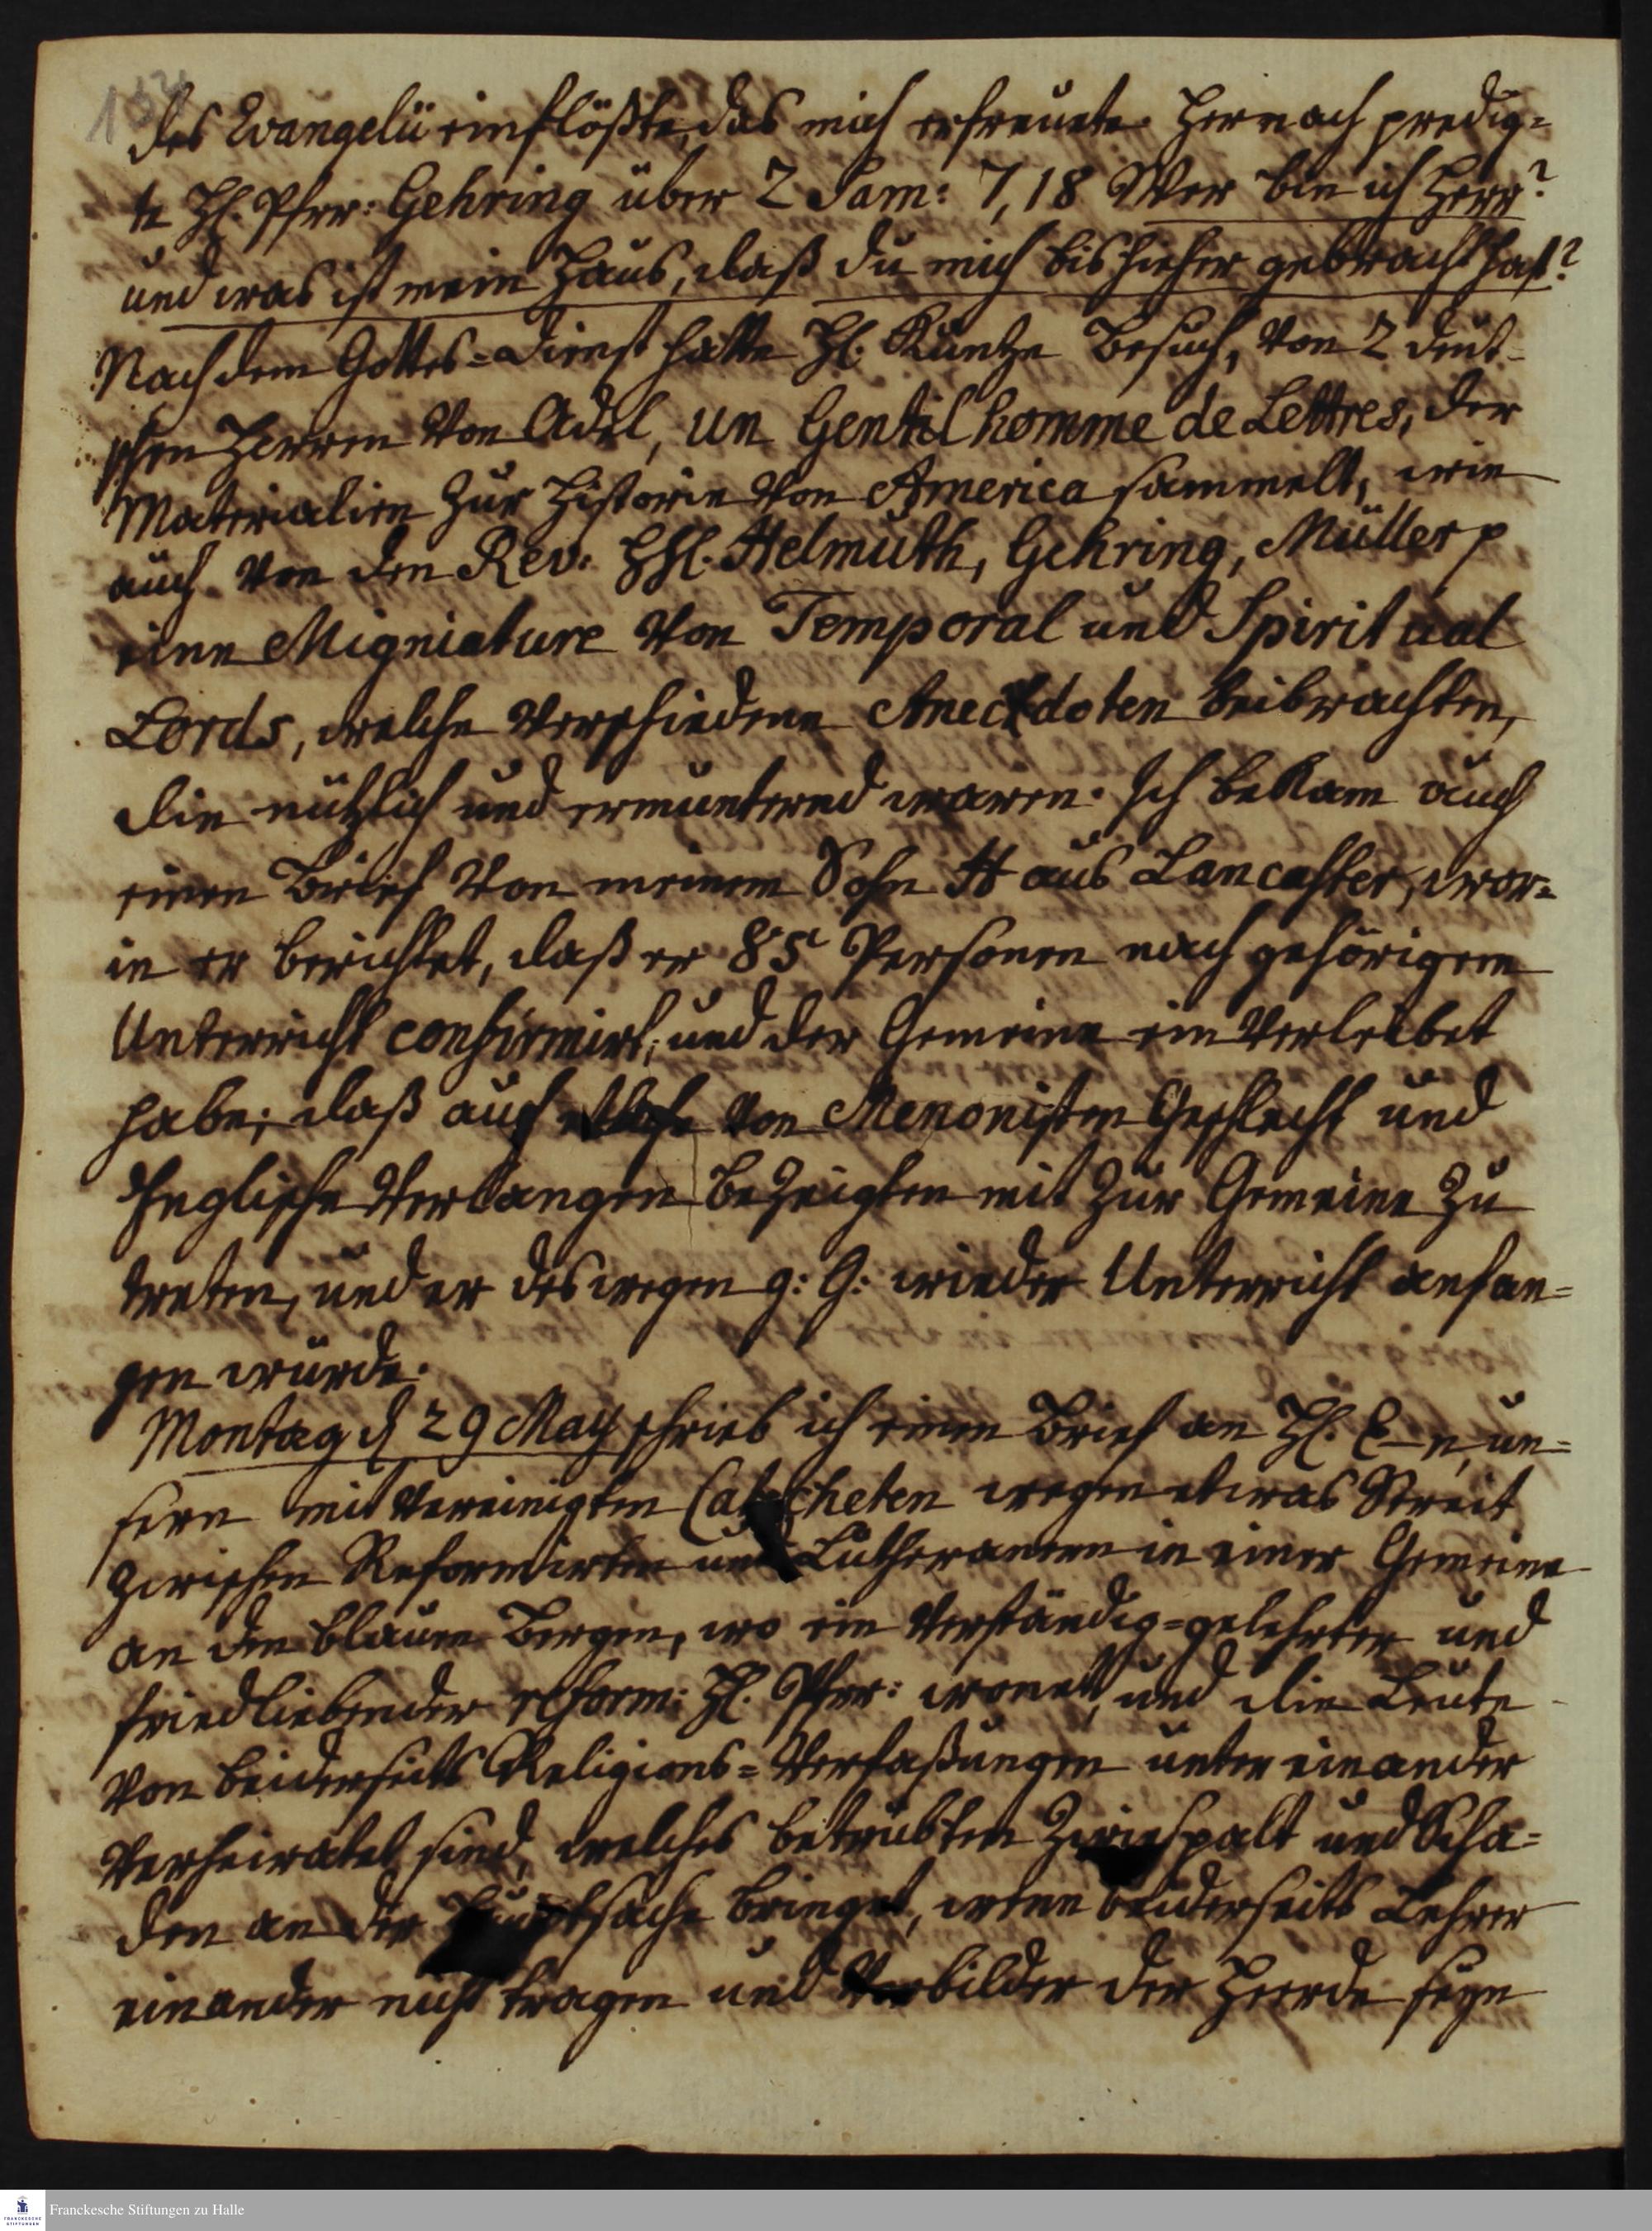 134
des Evangelii einflößte, das mich erfreuete. Hernach predig=
te H. Pfrr: Gehring über 2 Sam: 7, 18 Wer bin ich Herr?
und was ist mein Haus, daß du mich bis hieher gebracht hast?
Nach dem Gottes=dienst hatte H. Kuntze Besuch, von 2 deut-
schen Herren von Adel, un Gentilhomme de Lettres, der
Materialien zur Historie von America sammelt, wie
auch von den Rev: HH. Helmuth, Gehring, Müller p
eine Migniature von Temporal und Spiritual
Lords, welche verschiedene Anecdoten beibrachten,
die nützlich und ermunternd waren. Ich bekam auch
einen Brief von meinem Sohn H aus Lancaster, wor=
in er berichtet, daß er 85 Personen nach gehörigem
Unterricht confirmirt, und der Gemeine einverleibet
habe; daß auch etliche von Menonisten Geschlecht und
Englische Verlangen bezeigten mit zur Gemeine zu
treten, und er deswegen g: G: wieder Unterricht anfan=
gen würde.
Montag d 29 May schrieb ich einen Brief an H. E–n, un=
sern mit vereinigten Catecheten wegen etwas Streit
zwischen Reformirten und Lutheranern in einer Gemeine
an den blauen Bergen, wo ein verständig=gelehrter und
friedliebender reform: H. Pfrr: wonet, und die Leute
von beiderseits Religions=Verfaßungen unter einander
verheiratet sind, welches betrübten Zwiespalt und Scha=
den an der Hauptsache bringet, wenn beiderseits Lehrer
einander nicht tragen und Vorbilder der Heerde seyn
Franckesche Stiftungen zu Halle